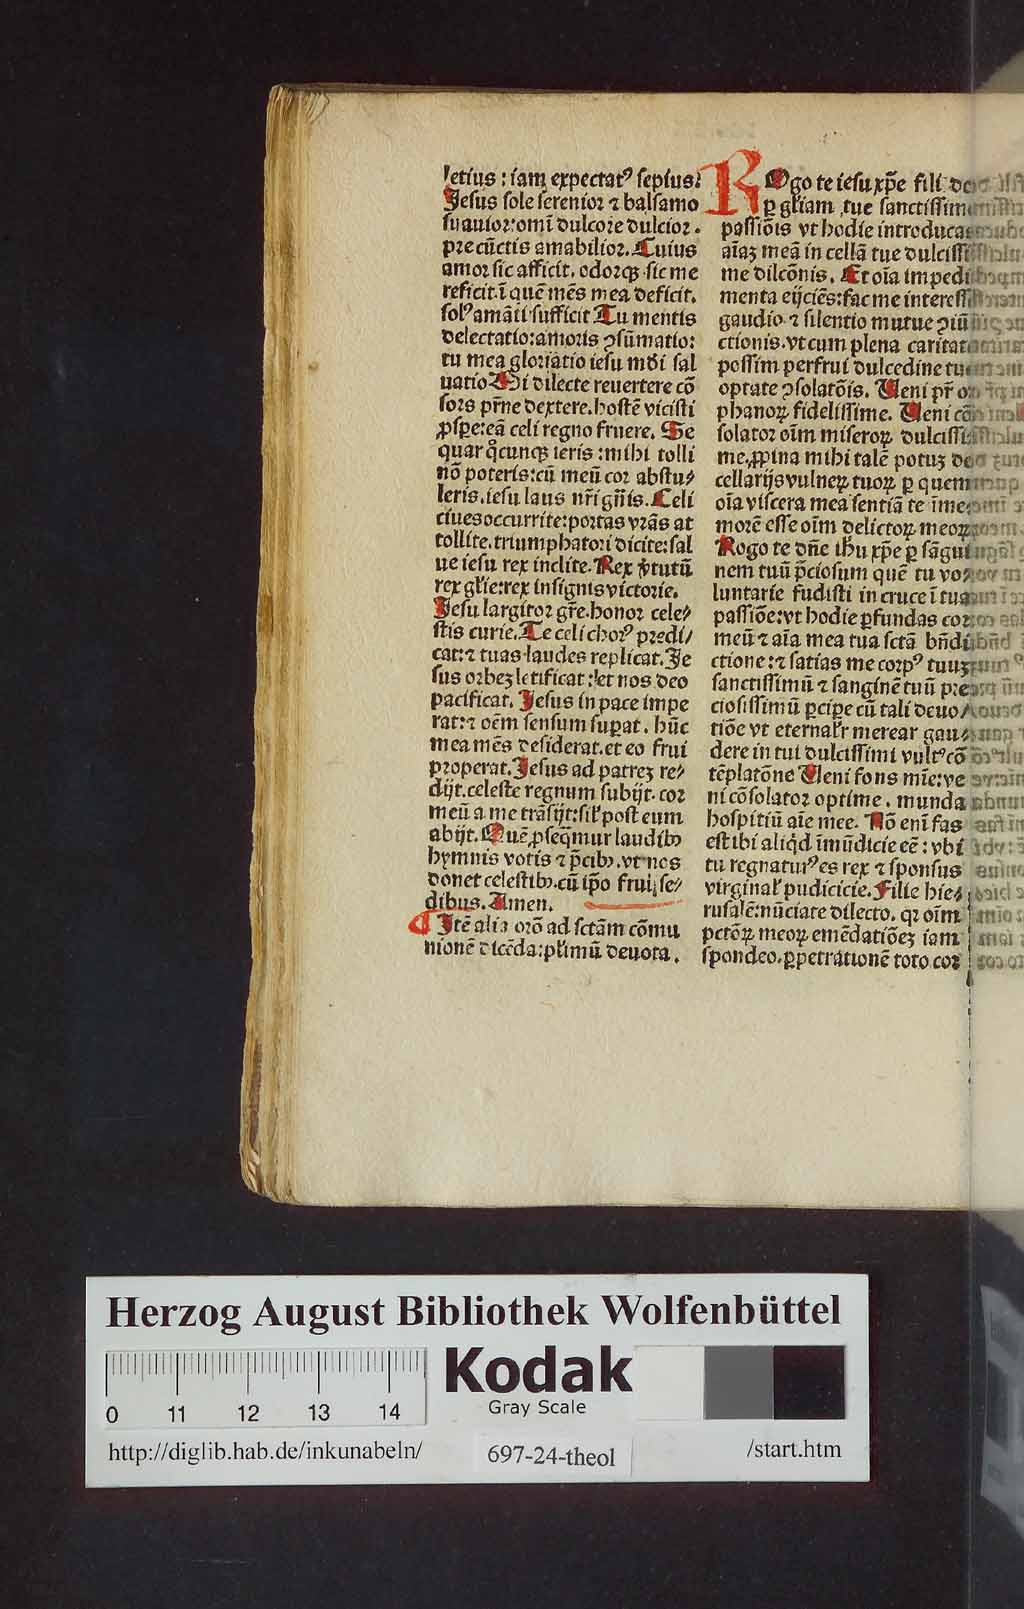 letius : iam expectatꝰ sepius.
Jesus sole serenior ⁊ balsamo
suauior: omī dulcore dulcior.
pre cūctis amabilior. Cuius
amor sic afficit. odorqꝫ sic me
reficit. ī quē mēs mea deficit.
solꝰ amāti sufficit Tu mentis
delectatio: amoris ꝯsūmatio:
tu mea gloriatio iesu mūdi sal
uatio Mi dilecte reuertere cō
sors pr̄ne dextere. hostē vicisti
ꝓspe: eā celi regno fruere. Se
quar qͦcunqꝫ ieris : mihi tolli
nō poteris: cū meū cor abstu⸗
leris. iesu laus nr̄i gn̄is. Celi
ciues occurrite: portas vrās at
tollite. triumphatori dicite: sal
ue iesu rex inclite. Rex v̓tutū
rex gl̄ie: rex insignis victorie.
Jesu largitor gr̄e. honor cele⸗
stis curie. Te celi chorꝰ predi⸗
cat: ⁊ tuas laudes replicat. Je
sus orbeꝫ letificat: et nos deo
pacificat. Jesus in pace impe
rat: ⁊ oēm sensum suꝑat. hūc
mea mēs desiderat. et eo frui
properat. Jesus ad patreꝫ re⸗
dijt. celeste regnum subijt. cor
meū a me trāsijt: sil̓ post eum
abijt. Quē ꝓseq̄mur laudibꝰ
hymnis votis ⁊ p̄cibꝰ. vt nos
donet celestibꝰ. cū ip̄o frui se⸗
dibus. Amen.
¶ Jtē alia orō ad sctām cōmu
nionē dicēda: pl̓imū deuota.
ROgo te iesu xp̄e fili de
ꝑ gl̄iam tue sanctissim
passiōis vt hodie introducas
aīaꝫ meā in cellā tue dulcissi
me dilcōnis. Et oīa impedi
menta eijciēs: fac me interess
gaudio ⁊ silentio mutue ꝯiū
ctionis. vt cum plena caritat
possim perfrui dulcedine tu
optate ꝯsolatōis. Ueni pr̄ or
phanoꝝ fidelissime. Ueni cō
solator oīm miseroꝝ dulcissi
me, ꝓpina mihi talē potuꝫ de
cellarijs vulneꝝ tuoꝝ ꝑ quem
oīa viscera mea sentiā te īme
morē esse oīm delictoꝝ meoꝝ
Rogo te dn̄e ih̄u xp̄e ꝑ sāgui
nem tuū p̄ciosum quē tu vo⸗
luntarie fudisti in cruce ī tua
passiōe: vt hodie ꝑfundas cor
meū ⁊ aīa mea tua sctā bn̄di
ctione: ⁊ satias me corpꝰ tuuꝫ
sanctissimū ⁊ sanginē tuū pre
ciosissimū ꝑcipe cū tali deuo⸗
tiōe vt eternal̓r merear gau⸗
dere in tui dulcissimi vultꝰ cō
tēplatōne Ueni fons mīe: ve
ni cōsolator optime. munda
hospitiū aīe mee. Nō enī fas
est ibi aliq̓d īmūdicie eē : vbi
tu regnaturꝰ es rex ⁊ sponsus
virginal̓ pudicicie. Filie hie⸗
rusalē: nūciate dilecto. qꝛ oīm
pctōꝝ meoꝝ emēdatiōeꝫ iam
spondeo. ꝑpetrationē toto cor
Herzog August Bibliothek Wolfenbüttel
Kodak
Gray Scale
0 11 12 13 14
http://diglib.hab.de/inkunabeln/
697-24-theol
/start.htm